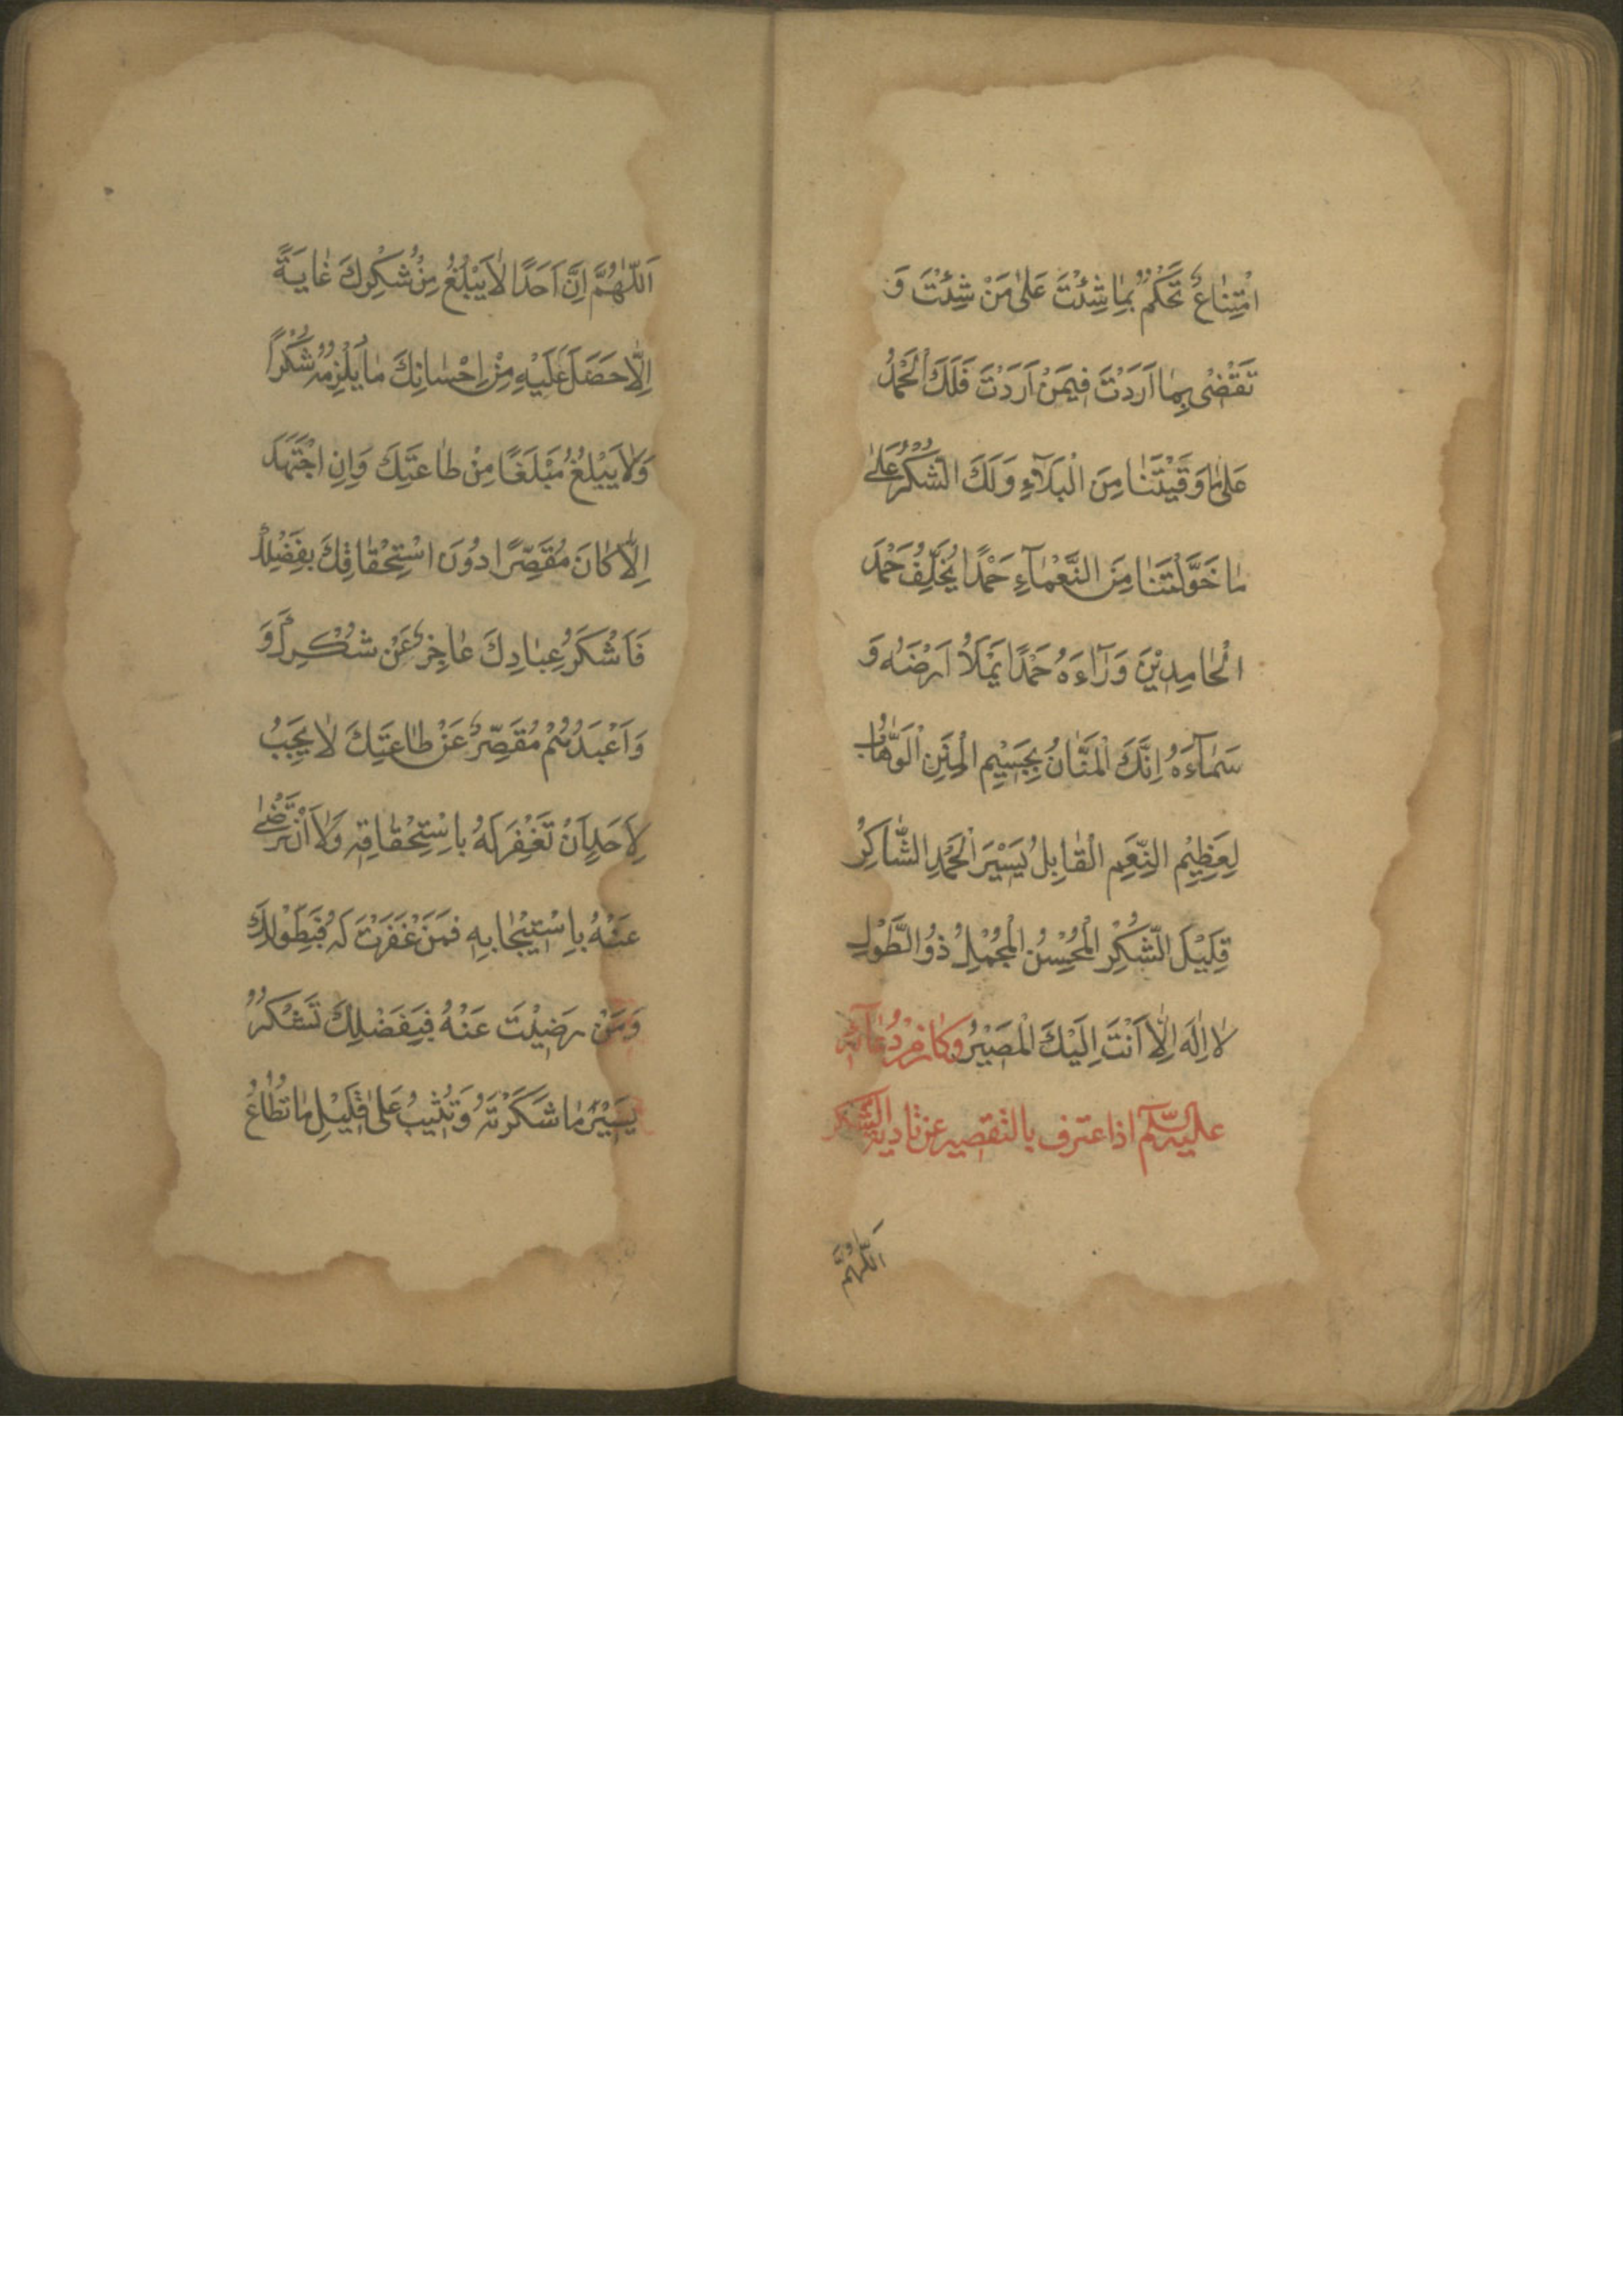 امْتِنَاعٌ تَحْكُمُ بِمَا شِئْتَ عَلَىٰ مَنْ شِئْتَ وَ
تَقْضٰى بِمَا اَرَدْتَ فِيمَنْ اَرَدْتَ فَلَكَ الْحَمْدُ
عَلىٰ مَا وَقَيْتَنَا مِنَ الْبَلَآءِ وَلَكَ الشُّكْرُ عَلىٰ
مَا خَوَّلْتَنَا مِنَ النَّعْمَآءِ حَمْدًا يُخَلِّفُ حَمْدَ
الْحَامِدِيْنَ وَرَآءَهُ حَمْدًا يَمْلَاُ اَرْضَهُ وَ
سَمَآءَهُ اِنَّكَ الْمَنَّانُ بِجَسِيْمِ الْمِنَنِ الْوَهَّابُ
لِعَظِيْمِ النِّعَمِ الْقَابِلُ يَسِيْرَ الْحَمْدِ الشَّاكِرُ
قَلِيْلَ الشُّكْرِ الْمُحْسِنُ الْمُجْمِلُ ذُو الطَّوْلِ
لَا اِلٰهَ اِلَّا اَنْتَ اِلَيْكَ الْمَصِيْرُ وَكَانَ مِنْ دُعَآئِهِ
عليه السّلم اذا اعترف بالتقصير عن تادية الشكر
اَللّٰهُمَّ
اَللّٰهُمَّ اِنَّ اَحَدًا لَا يَبْلُغُ مِنْ شُكْرِكَ غَايَةً
اِلَّا حَصَلَ عَلَيْهِ مِنْ اِحْسَانِكَ مَا يُلْزِمُهُ شُكْرًا
وَلَا يَبْلُغُ مَبْلَغًا مِنْ طَاعَتِكَ وَاِنِ اجْتَهَدَ
اِلَّا كَانَ مُقَصِّرًا دُونَ اسْتِحْقَاقِكَ بِفَضْلِكَ
فَاَشْكَرُ عِبَادِكَ عَاجِزٌ عَنْ شُكْرِكَ وَ
وَاَعْبَدُهُمْ مُقَصِّرٌ عَنْ طَاعَتِكَ لَا يَجِبُ
لِاَحَدٍ اَنْ تَغْفِرَ لَهُ بِاسْتِحْقَاقِهِ وَلَا اَنْ تَرْضٰى
عَنْهُ بِاسْتِيْجَابِهِ فَمَنْ غَفَرْتَ لَهُ فَبِطَوْلِكَ
وَمَنْ رَضِيْتَ عَنْهُ فَبِفَضْلِكَ تَشْكُرُ
يَسِيْرَ مَا شَكَرْتَهُ وَتُثِيْبُ عَلىٰ قَلِيْلِ مَا تُطَاعُ